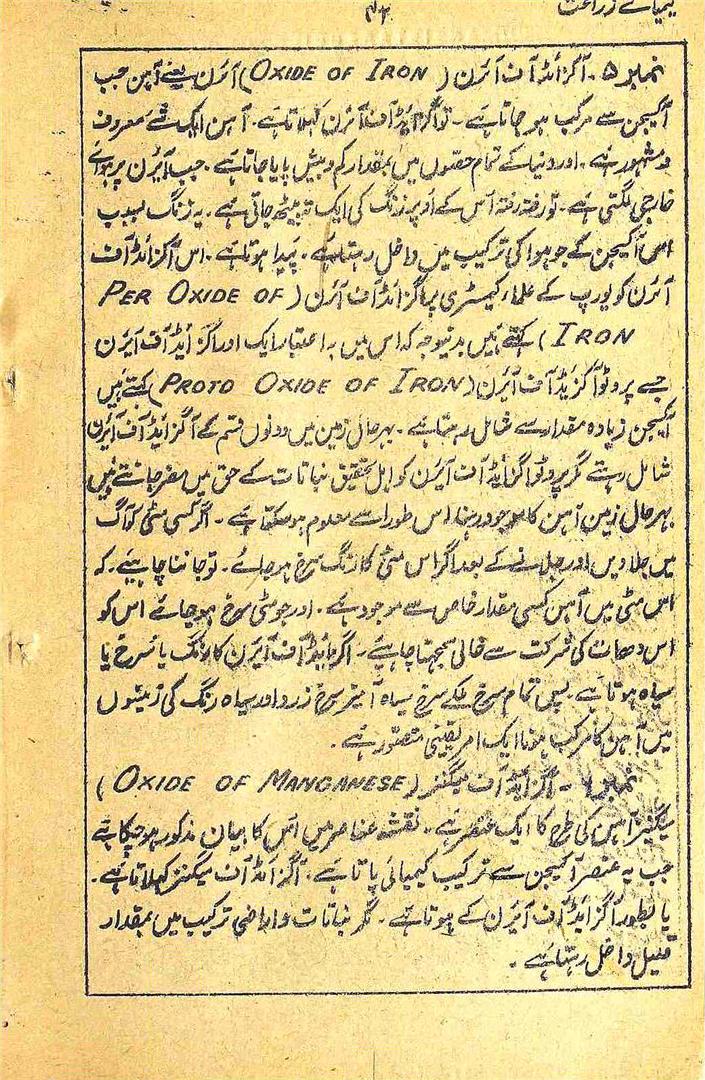 کیمیائے زراعت
۴۲
نمبر ۵ ۔ آگزائڈ آف آئرن ( OXIDE OF IRON ) آئرن یعنے آہن جب
آکسیجن سے مرکب ہو جاتا ہے ۔ تو اگزایڈ آف آئرن کہلاتا ہے ۔ آہن ایک شے معروف
و مشہور ہے ۔ اور دنیا کے تمام حصوں میں بمقدار کم و بیش پایا جاتا ہے ۔ جب آیرن پر ہوائے
خارجی لگتی ہے ۔ تو رفتہ رفتہ اس کے اوپر زنگ کی ایک تہ بیٹھ جاتی ہے ۔ یہ زنگ بسبب
اسی آکسیجن کے جو ہوا کی ترکیب میں داخل رہتا ہے ۔ پیدا ہوتا ہے ۔ اس آگزائڈ آف
آئرن کو یورپ کے علماء کیمسٹری پر اگزائڈ آف آئرن ( PER OXIDE OF
IRON ) کہتے ہیں بدینوجہ کہ اس میں بہ اعتبار ایک اور اگزایڈ آف آیرن
جسے پروٹو آگزیڈ آف آیرن ( PROTO OXIDE OF IRON ) کہتے ہیں
آکسیجن زیادہ مقدار سے شامل رہتا ہے ۔ بہرحال زمین میں دونوں قسم کے آگزایڈ آف آیرن
شامل رہتے مگر پروٹو اگزایڈ آف آیرن کو اہل تحقیق نباتات کے حق میں مضر جانتے ہیں
بہرحال زمین آہن کا موجود رہنا اس طور سے معلوم ہو سکتا ہے ۔ اگر کسی مٹی کو آگ
میں جلا دیں اور جلانے کے بعد اگر اس مٹی کا رنگ سرخ ہو جائے ۔ تو جاننا چاہیے ۔ کہ
اس مٹی میں آہن کسی مقدار خاص سے موجود ہے ۔ اور جو مٹی سرخ ہو جائے اس کو
اس دھات کی شرکت سے خالی سمجھنا چاہیے ۔ اگزایڈ آف آیرن کا رنگ یا سرخ یا
سیاہ ہوتا ہے پس تمام سرخ ہلکے سرخ سیاہ آمیز سرخ زرد اور سیاہ رنگ کی زمینوں
میں آہن کا مرکب ہونا ایک امر یقینی متصور ہے ۔
نمبر ۶ ۔ اگزائڈ آف میگنیز ( OXIDE OF MANGANESE )
میگنیز آہن کی طرح کا ایک عنصر ہے ۔ نقشہ عناصر میں اس کا بیان مذکور ہو چکا ہے
جب یہ عنصر آکسیجن سے ترکیب کیمیائی پاتا ہے ۔ آگزائڈ آف میگنیز کہلاتا ہے ۔
یا بطور اگزایڈ آف آیرن کے ہوتا ہے ۔ مگر نباتات و اراضی ترکیب میں بمقدار
قلیل داخل رہتا ہے ۔